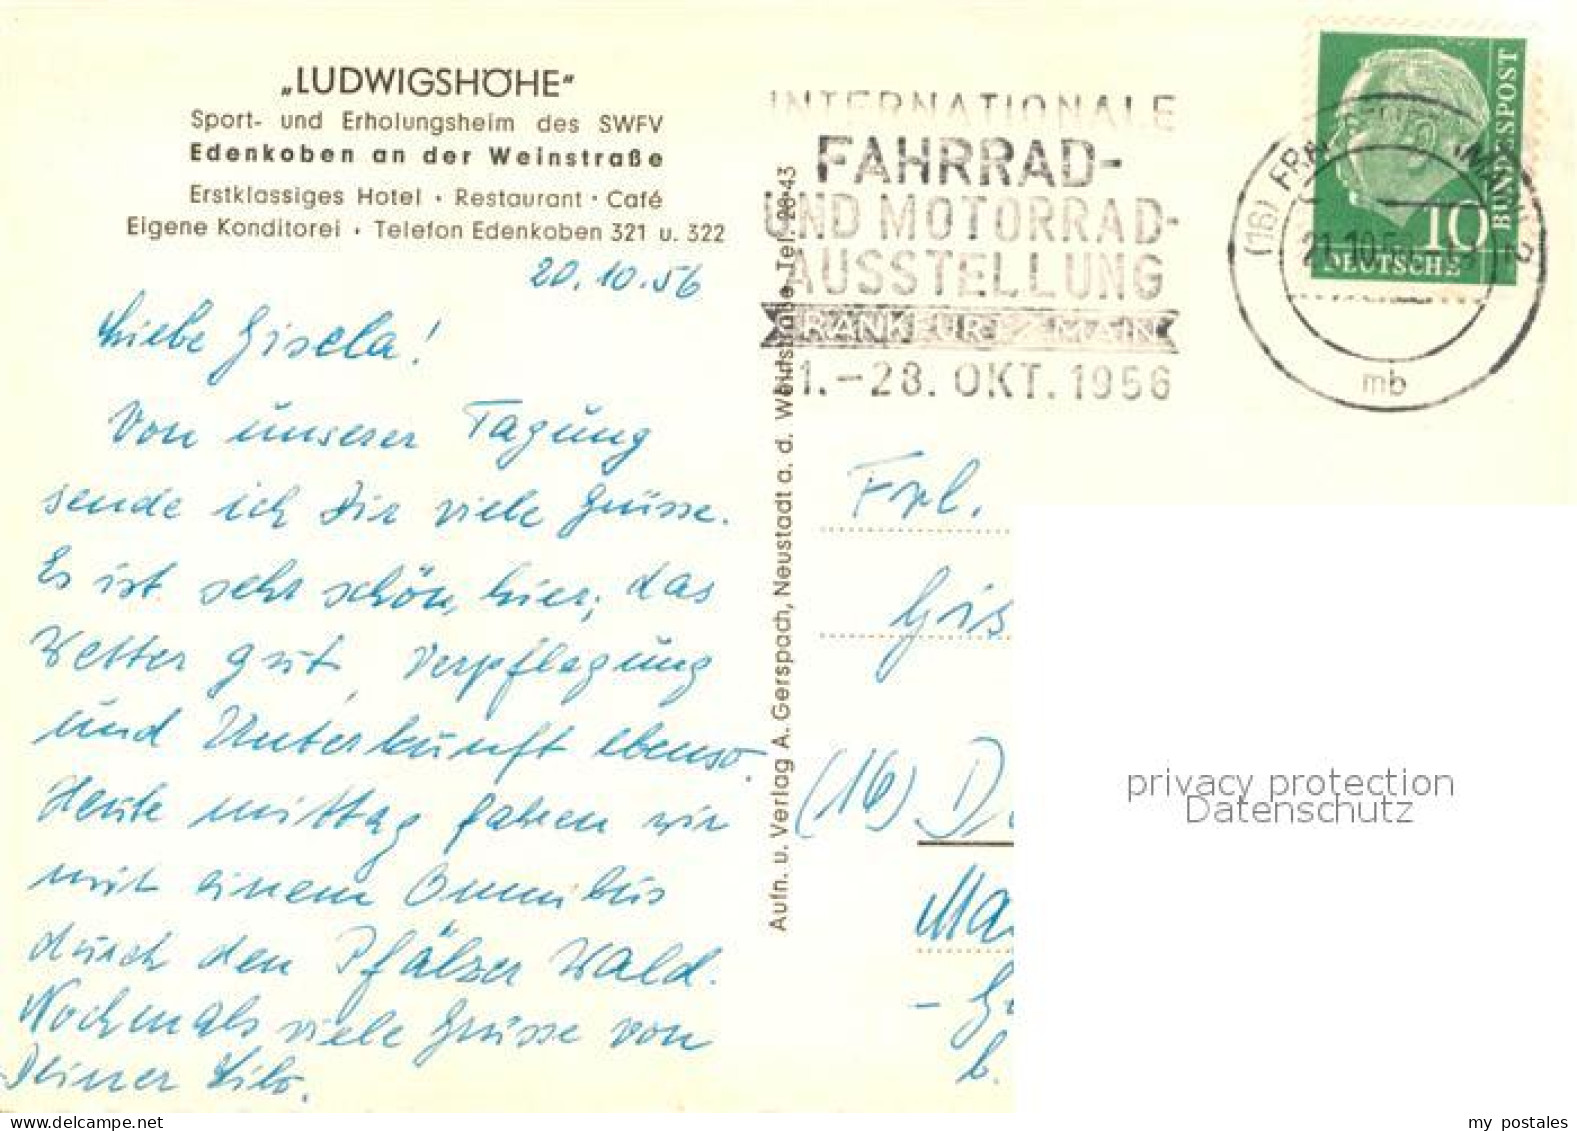 „LUDWIGSHÖHE“
Sport- und Erholungsheim des SWFV
Edenkoben an der Weinstraße
Erstklassiges Hotel · Restaurant · Café
Eigene Konditorei · Telefon Edenkoben 321 u. 322
20.10.56
Liebe Gisela!
Von unserer Tagung
sende ich Dir viele Grüsse.
Es ist sehr schön hier; das
Wetter gut, Verpflegung
und Unterkunft ebenso.
Heute mittag fahren wir
mit einem Omnibus
durch den Pfälzer Wald.
Nochmals viele Grüsse von
Deiner Lilo.
Aufn. u. Verlag A. Gerspach, Neustadt a. d. Weinstraße, Tel. 28 43
INTERNATIONALE
FAHRRAD-
UND MOTORRAD-
AUSSTELLUNG
FRANKFURT / MAIN
21.–28. OKT. 1956
BUNDESPOST
10
DEUTSCHE
(16) FRANKFURT (MAIN)
21.10.56
mb
Frl.
Gis
(16) D
Ma
- G
b.
privacy protection
Datenschutz
www.delcampe.net
my postales